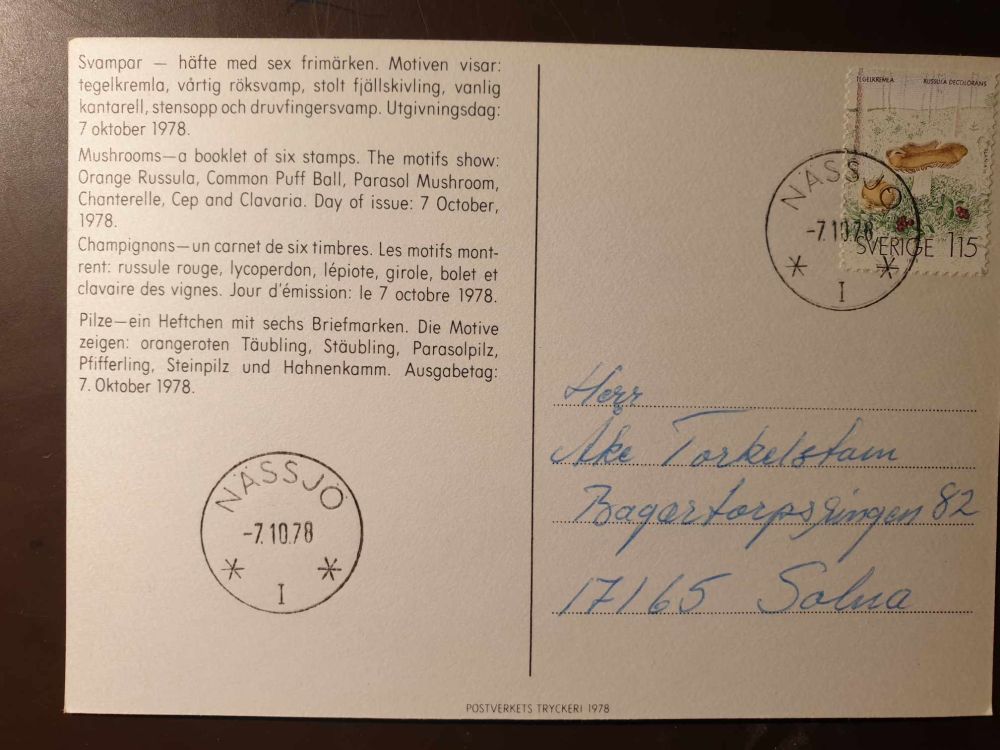 Svampar — häfte med sex frimärken. Motiven visar:
tegelkremla, vårtig röksvamp, stolt fjällskivling, vanlig
kantarell, stensopp och druvfingersvamp. Utgivningsdag:
7 oktober 1978.
Mushrooms—a booklet of six stamps. The motifs show:
Orange Russula, Common Puff Ball, Parasol Mushroom,
Chanterelle, Cep and Clavaria. Day of issue: 7 October,
1978.
Champignons—un carnet de six timbres. Les motifs mont-
rent: russule rouge, lycoperdon, lépiote, girole, bolet et
clavaire des vignes. Jour d'émission: le 7 octobre 1978.
Pilze—ein Heftchen mit sechs Briefmarken. Die Motive
zeigen: orangeroten Täubling, Stäubling, Parasolpilz,
Pfifferling, Steinpilz und Hahnenkamm. Ausgabetag:
7. Oktober 1978.
NÄSSJÖ
-7.10.78
* *
I
TEGELKREMLA RUSSULA DECOLORANS
SVERIGE 115
NÄSSJÖ
-7.10.78
* *
I
Herr
Åke Torkelstam
Bagartorpsringen 82
17165 Solna
POSTVERKETS TRYCKERI 1978